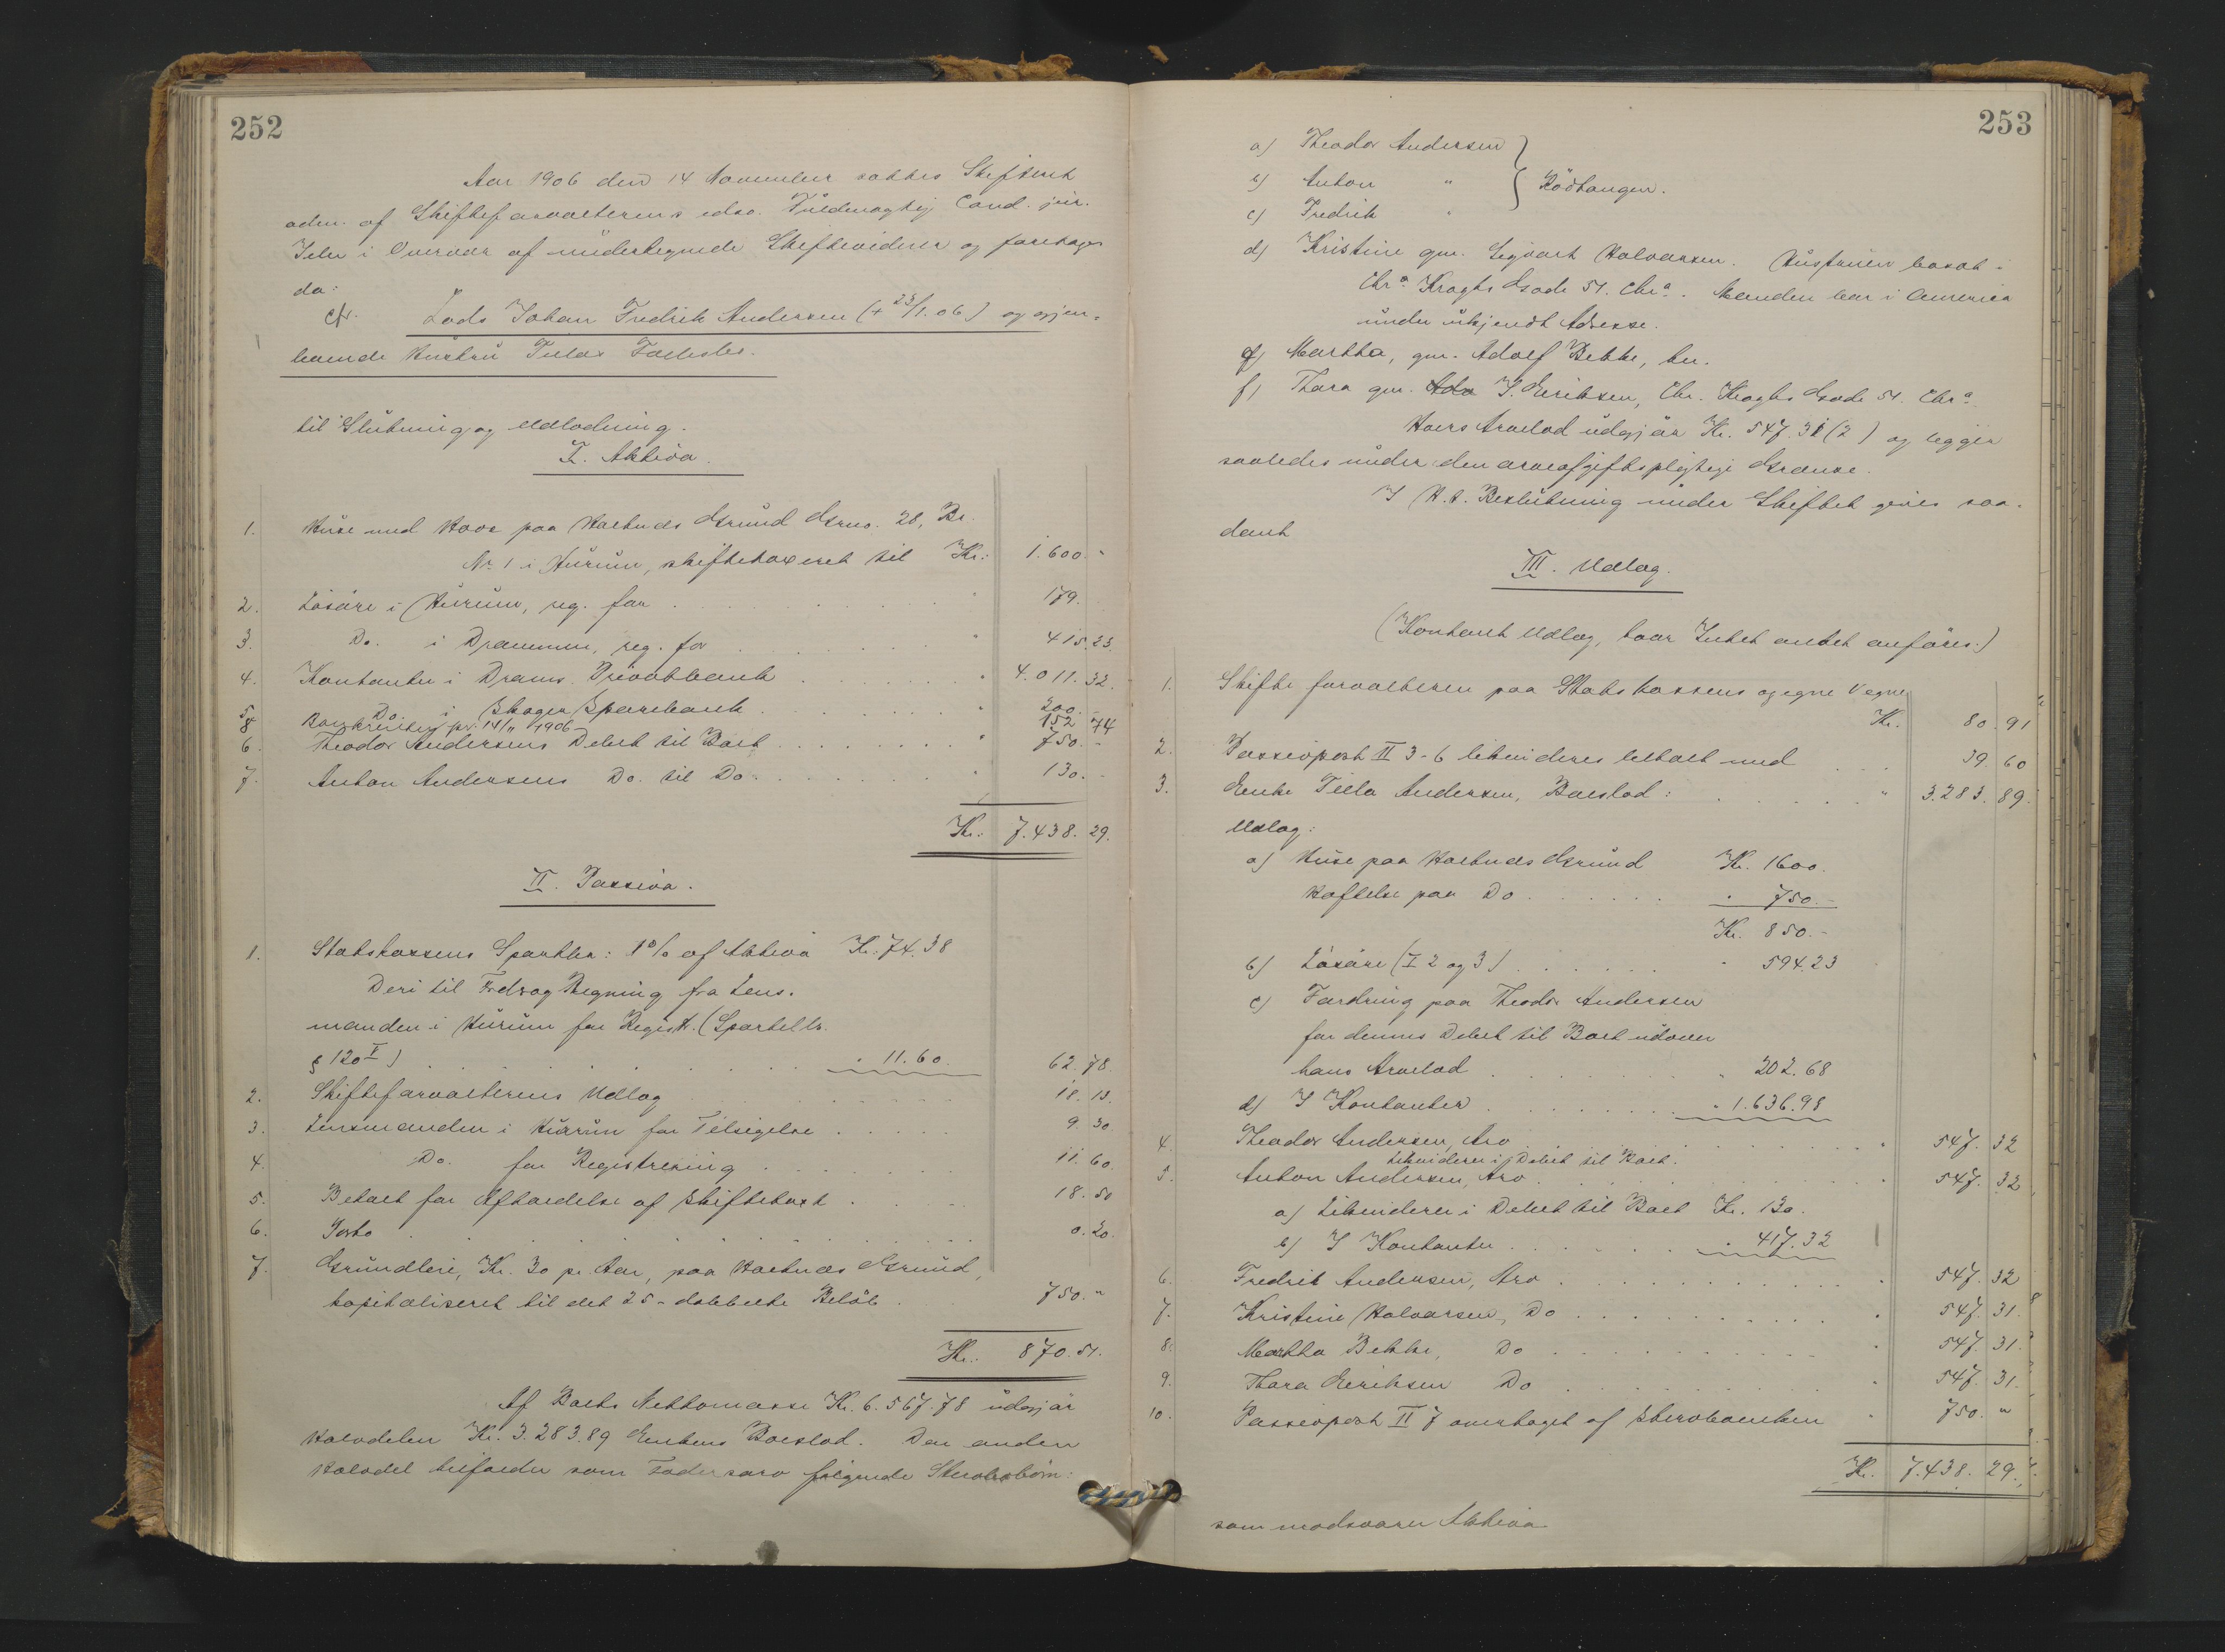 252
Aar 1906 den 14 November sattes Skifteret
adm. af Skifteforvalterens edsv. Fuldmægtig Cand. jur.
i Overvær af undertegnede Skiftevidner og foretoges
da:
cfr. Lods Johan Fredrik Andersen (+ 23/1. 06) og gjen-
levende Hustru Fællesbo.
til Slutning og Udlodning.
I. Aktiva.
1. Huse med Have paa Havnens Grund Grno. 28, Br.
Nr. 1 i Hurum, skiftetaxeret til Kr: 1.600.-
2. Løsøre i Hurum, reg. for . . . " 179.
3. Do. i Drammen, reg. for . . . " 415.23.
4. Kontanter i Drams. Privatbank . . . " 4.011.32.
5. Do i Skoger Sparebank . . . " 200.-
8 Bankrenter pr. 14/11 1906 152 74
6. Theodor Andersens Debet til Boet . . . " 750.-
7. Anton Andersens Do. til Do. . . . " 130.-
Kr: 7.438.29.
II. Passiva.
1. Statskassens Sportler: 1% af Aktiva Kr. 74.38
Deri til Fradrag Regning fra Lens-
manden i Hurum for Registr. (Sportell.
§ 120 ) . . . " 11.60. 62.78.
2. Skifteforvalterens Udlæg . . . 18.13.
3. Lensmanden i Hurum for Tilsigelse . . . 9.30.
4. Do. for Registrering . . . 11.60.
5. Betalt for Afholdelse af Skiftetaxt . . . 18.50
6. Porto . . . 0.20.
7. Grundleie, Kr. 30 pr. Aar, paa Havnens Grund,
kapitaliseret til det 25-dobbelte Beløb . . . 750.-
Kr. 870.51.
Af Boets Nettomasse Kr. 6.567.78 udgjør
Halvdelen Kr. 3.283.89 Enkens Boeslod. Den anden
Halvdel tilfalder som Fadersarv følgende Skiftebørn:
253
a) Theodor Andersen
b) Anton " Rødtangen.
c) Fredrik "
d) Kristine gm. Sigvart Halvorsen. Hustruen bosat i
Chra. Kroghs Gade 51. Chra. Manden bor i America
under ukjendt Adresse.
e) Martha, gm. Adolf Bekke, her.
f) Thora gm. J. Eriksen, Chr. Kroghs Gade 51. Chra
Hvers Arvelod udgjør Kr. 547.31 (2) og ligger
saaledes under den arveafgiftspligtige Grænse.
I H.t. Beslutning under Skiftet gives saa-
dant
III. Udlæg.
(Kontant Udlæg, hvor Intet andet anføres.)
1. Skifteforvalteren paa Statskassens og egne Vegne
Kr. 80.91
2. Passivpost II 3-6 likvideres betalt med . . . 39 60
3. Enke Andersen, Boeslod: . . . " 3.283.89.
Udlæg:
a) Huse paa Havnens Grund Kr. 1600.
Heftelse paa Do . . . " 750.-
Kr. 850.-
b) Løsøre (I 2 og 3) . . . " 594.23
c) Fordring paa Theodor Andersen
for dennes Debet til Boet udover
hans Arvelod . . . " 202.68
d) I Kontanter . . . " 1.636.98
4. Theodor Andersen, Arv . . . " 547.32
Likvideres i Debet til Boet.
5. Anton Andersen, Arv . . . " 547.32
a) Likvideres i Debet til Boet Kr. 130.
b) I Kontanter . . . " 417.32
6. Fredrik Andersen, Arv . . . " 547.32
7. Kristine Halvorsen, Do . . . " 547.31.
8. Martha Bekke, Do . . . " 547.31.
9. Thora Eriksen Do . . . " 547.31.
10. Passivpost II 7 overtaget af " 750.-
Kr. 7.438.29.
som modsvarer Aktiva